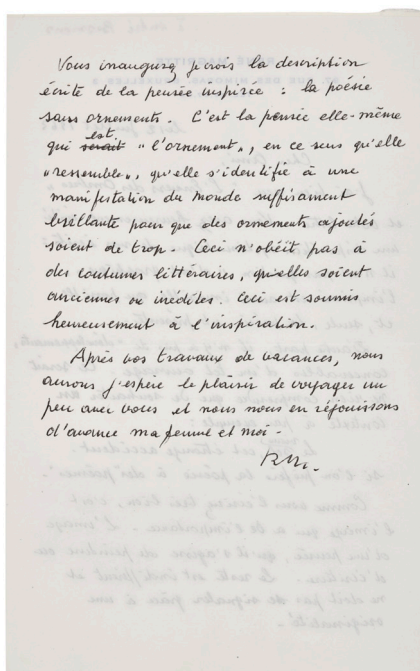 Vous inaugurez, je crois la description
écrite de la pensée inspirée : la poésie
sans ornements. C'est la pensée elle-même
est
qui serait "l'ornement", en ce sens qu'elle
"ressemble", qu'elle s'identifie à une
manifestation du monde suffisament
brillante pour que des ornements ajoutés
soient de trop. Ceci n'obéit pas à
des coutumes littéraires, qu'elles soient
anciennes ou inédites. Ceci est soumis
heureusement à l'inspiration.
Après vos travaux de vacances, nous
aurons j'espère le plaisir de voyager un
peu avec vous et nous nous en réjouissons
d'avance ma femme et moi.
RM.